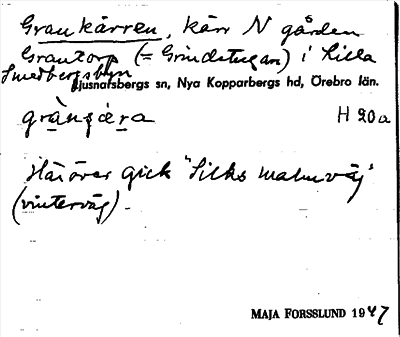 Grankärren, kärr N gården
Grantorp (= Grindstugan) i Lilla
Smedbergsbyn
Ljusnarsbergs sn, Nya Kopparbergs hd, Örebro län.
H 90a
Häröver gick "Silks malmväg"
(vinterväg).
MAJA FORSSLUND 1947